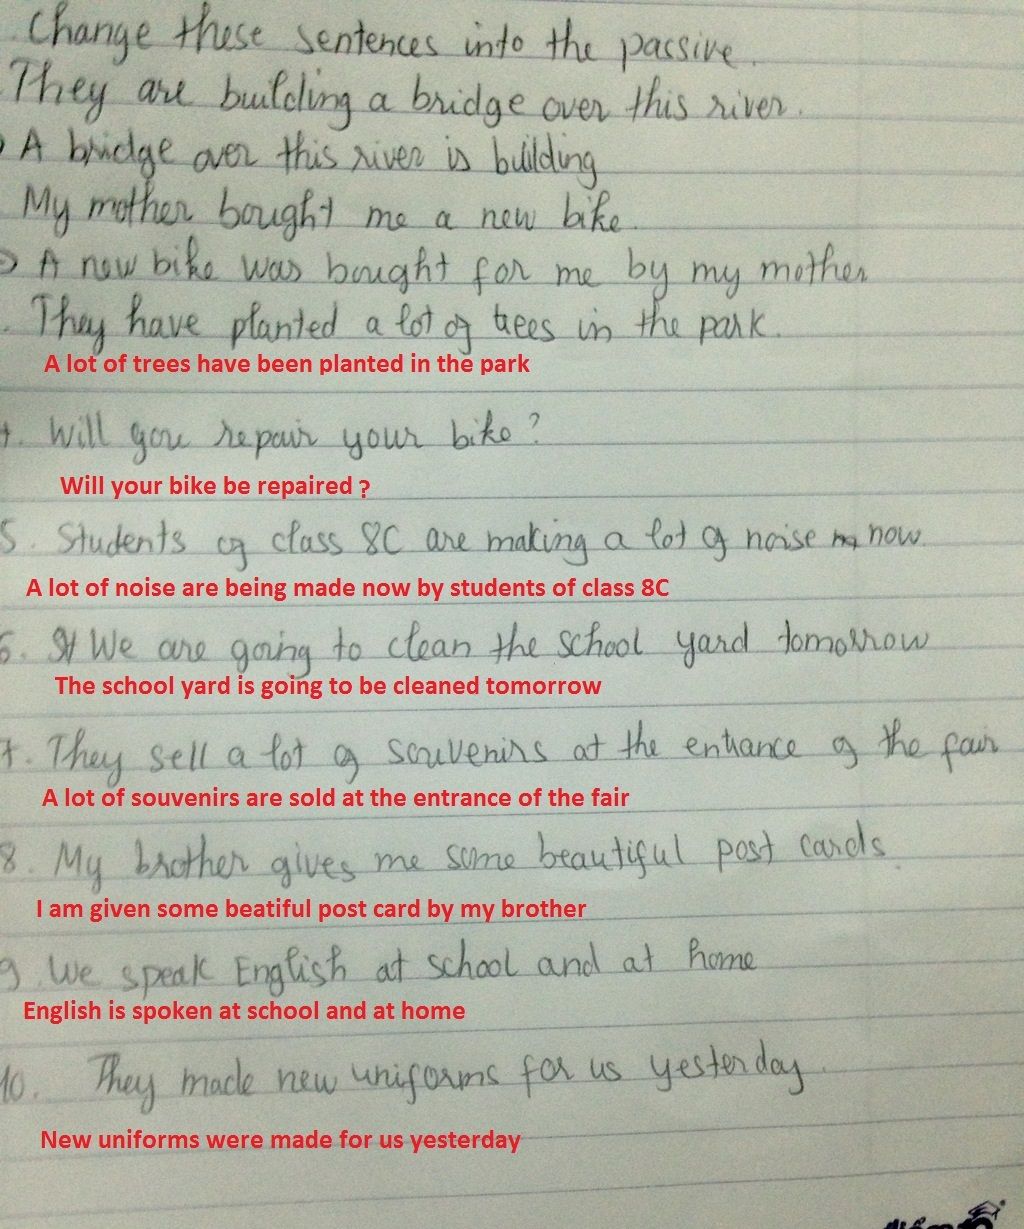 Change these sentences into the passive.
They are building a bridge over this river.
A bridge over this river is building
My mother bought me a new bike.
A new bike was bought for me by my mother
They have planted a lot of trees in the park.
A lot of trees have been planted in the park
Will you repair your bike?
Will your bike be repaired ?
5. Students of class 8C are making a lot of noise now.
A lot of noise are being made now by students of class 8C
6. We are going to clean the school yard tomorrow
The school yard is going to be cleaned tomorrow
7. They sell a lot of souvenirs at the entrance of the fair
A lot of souvenirs are sold at the entrance of the fair
8. My brother gives me some beautiful post cards.
I am given some beatiful post card by my brother
9. We speak English at school and at home
English is spoken at school and at home
10. They made new uniforms for us yesterday.
New uniforms were made for us yesterday